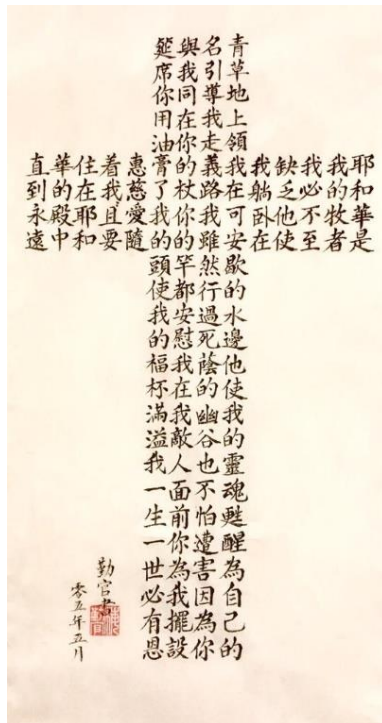 耶和華是
我的牧者
我必不至
缺乏他使
我躺臥在
青草地上領我在可安歇的水邊他使我的靈魂甦醒為自己的
名引導我走義路我雖然行過死蔭的幽谷也不怕遭害因為你
與我同在你的杖你的竿都安慰我在我敵人面前你為我擺設
筵席你用油膏了我的頭使我的福杯滿溢我一生一世必有恩
惠慈愛隨
着我且要
住在耶和
華的殿中
直到永遠
勤宫書
零五年五月